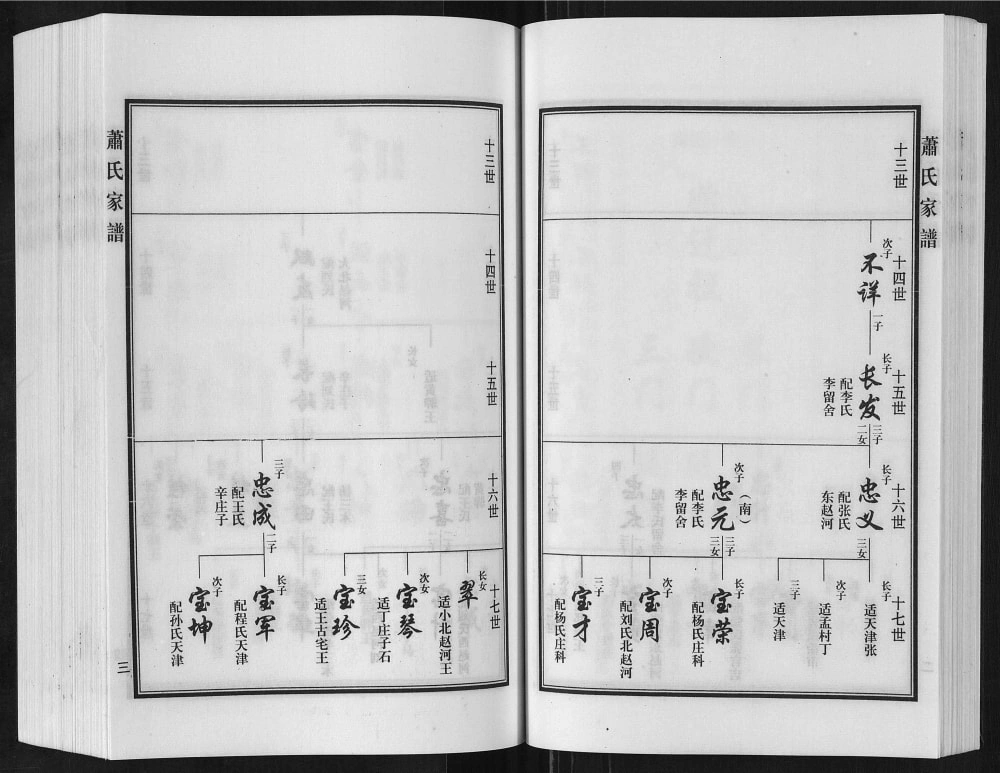 蕭氏家譜
十三世
十四世
次子
不详
一子
十五世
长子
长发
配李氏
李留舍
三子
二女
十六世
长子
忠义
配张氏
东赵河
三女
次子
忠元
（南）
配李氏
李留舍
三子
三女
十七世
长子
适天津张
次子
适孟村丁
三子
适天津
长子
宝荣
配杨氏庄科
次子
宝周
配刘氏北赵河
三子
宝才
配杨氏庄科
蕭氏家譜
十三世
十四世
十五世
十六世
三子
忠成
配王氏
辛庄子
二子
十七世
长女
翠
适小北赵河王
次女
宝琴
适丁庄子石
三女
宝珍
适王古宅王
长子
宝军
配程氏天津
次子
宝坤
配孙氏天津
三